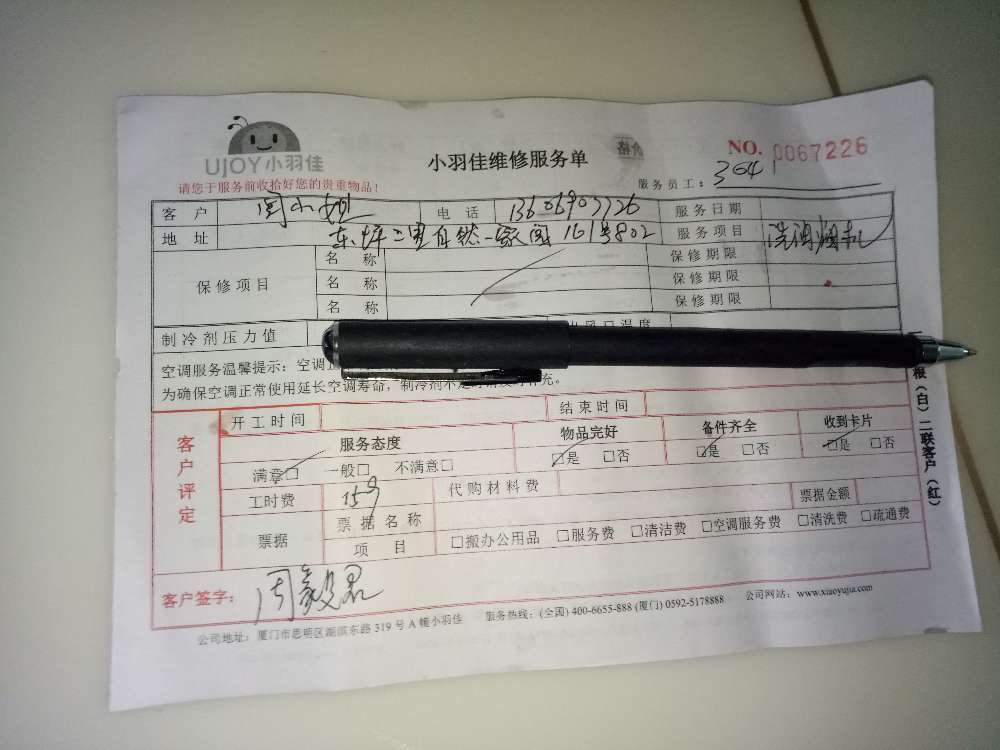 UJOY小羽佳
小羽佳维修服务单
价格
NO. 0067226
请您于服务前收拾好您的贵重物品!
服务员工: 3641
客户 周小姐 电话 13606907726 服务日期
地址 东坪二里自然一家阁161号802 服务项目 洗油烟机
保修项目 名称 保修期限
名称 保修期限
名称 保修期限
制冷剂压力值 出风口温度
空调服务温馨提示:空调
为确保空调正常使用延长空调寿命,制冷剂不足
根(白)二联客户(红)
客户评定
开工时间 结束时间
服务态度 物品完好 备件齐全 收到卡片
满意□ 一般□ 不满意□ □是 □否 □是 □否 □是 □否
工时费 159 代购材料费 票据金额
票据 票据名称
项目 □搬办公用品 □服务费 □清洁费 □空调服务费 □清洗费 □疏通费
客户签字: 周毅君
公司地址:厦门市思明区湖滨东路319号A幢小羽佳 服务热线:(全国)400-6655-888 (厦门)0592-5178888 公司网站:www.xiaoyujia.com